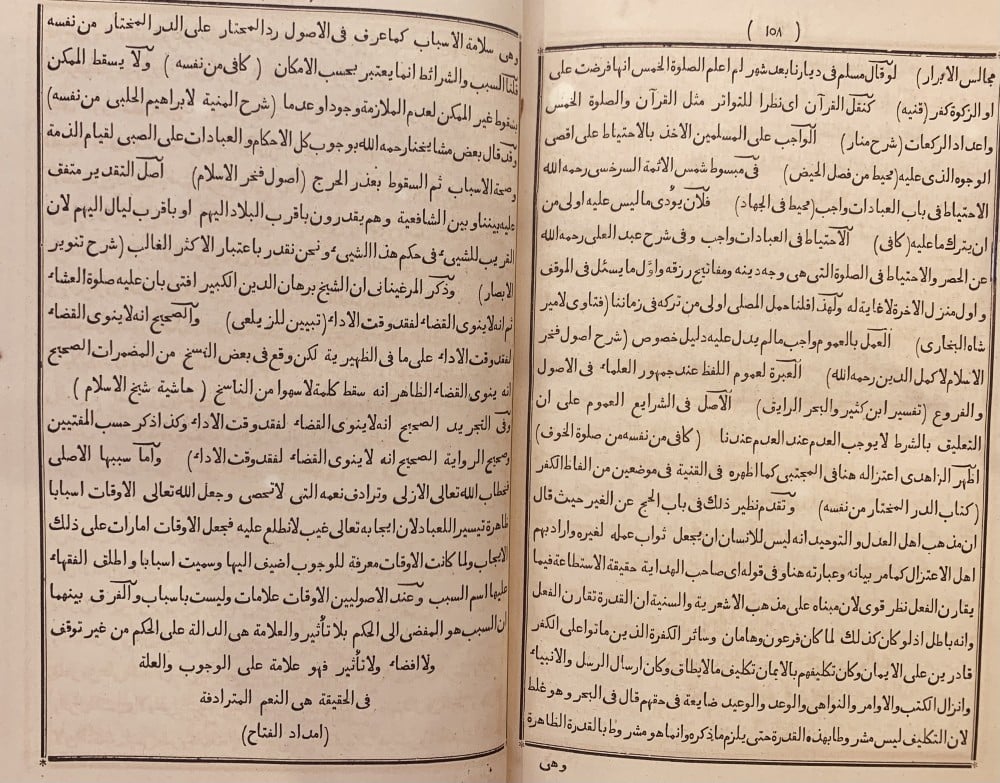 ( ١٥٨ )
مجالس الابرار) لو قال مسلم فى ديارنا بعد شهر لم اعلم الصلوة الخمس انها فرضت على
او الزكوة كفر (قنيه) كنقل القرآن اى نظرا للتواتر مثل القرآن والصلوة الخمس
واعداد الركعات (شرح منار) الواجب على المسلمين الاخذ بالاحتياط على اقصى
الوجوه الذى عليه (محيط من فصل الحيض) فى مبسوط شمس الائمة السرخسى رحمه الله
الاحتياط فى باب العبادات واجب (محيط فى الجهاد) فلان يؤدى ما ليس عليه اولى من
ان يترك ما عليه (كافى) الاحتياط فى العبادات واجب وفى شرح عبد العلى رحمه الله
عن الحصر والاحتياط فى الصلوة التى هى وجه دينه ومفاتيح رزقه واول ما يسئل فى الموقف
واول منزل الاخرة لا غاية له ولهذا قلنا حمل المصلى اولى من تركه فى زماننا (فتاوى لامير
شاه البخارى) العمل بالعموم واجب مالم يدل عليه دليل خصوص (شرح اصول فخر
الاسلام لاكمل الدين رحمه الله) العبرة لعموم اللفظ عند جمهور العلماء فى الاصول
والفروع (تفسير ابن كثير والبحر الرايق) الاصل فى الشرايع العموم على ان
التعليق بالشرط لا يوجب العدم عند العدم عندنا (كافى من نفسه من صلوة الخوف)
اظهر الزاهدى اعتزاله هنا فى المجتبى كما اظهره فى القنية فى موضعين من الفاظ الكفر
(كتاب الدر المختار من نفسه) وتقدم نظير ذلك فى باب الحج عن الغير حيث قال
ان مذهب اهل العدل والتوحيد انه ليس للانسان ان يجعل ثواب عمله لغيره واراد بهم
اهل الاعتزال كما مر بيانه وعبارته هنا وفى قوله اى صاحب الهداية حقيقة الاستطاعة فيما
يقارن الفعل نظر قوى لان مبناه على مذهب الاشعرية والسنية ان القدرة تقارن الفعل
وانه باطل اذ لو كان كذلك لما كان فرعون وهامان وسائر الكفرة الذين ماتوا على الكفر
قادرين على الايمان وكان تكليفهم بالايمان تكليف مالايطاق وكان ارسال الرسل والانبياء
وانزال الكتب والاوامر والنواهى والوعد والوعيد ضايعة فى حقهم قال فى البحر وهو غلط
لان التكليف ليس مشروطا بهذه القدرة حتى يلزم ما ذكره وانما هو مشروط بالقدرة الظاهرة
وهى
وهى سلامة الاسباب كما عرف فى الاصول رد المحتار على الدر المختار من نفسه
قلنا السبب والشرائط انما يعتبر بحسب الامكان (كافى من نفسه) ولا يسقط الممكن
بسقوط غير الممكن لعدم الملازمة وجودا وعدما (شرح المنية لابراهيم الحلبى من نفسه)
وقد قال بعض مشايخنا رحمه الله بوجوب كل الاحكام والعبادات على الصبى لقيام الذمة
وصحة الاسباب ثم السقوط بعذر الحرج (اصول فخر الاسلام) اصل التقدير متفق
عليه بيننا وبين الشافعية وهم يقدرون باقرب البلاد اليهم او باقرب ليال اليهم لان
القريب للشيئ فى حكم هذا الشيئ ونحن نقدر باعتبار الاكثر الغالب (شرح تنوير
الابصار) وذكر المرغينانى ان الشيخ برهان الدين الكبير افتى بان عليه صلوة العشاء
ثم انه لا ينوى القضاء لفقد وقت الاداء (تبيين للزيلعى) والصحيح انه لاينوى القضاء
لفقد وقت الاداء على ما فى الظهيرية لكن وقع فى بعض النسخ من المضمرات الصحيح
انه ينوى القضاء الظاهر انه سقط كلمة لا سهوا من الناسخ (حاشية شيخ الاسلام)
وفى التجريد الصحيح انه لاينوى القضاء لفقد وقت الاداء وكذا ذكر حسب المفتيين
وصحيح الرواية الصحيح انه لاينوى القضاء لفقد وقت الاداء) واما سببها الاصلى
فخطاب الله تعالى الازلى وترادف نعمه التى لا تحصى وجعل الله تعالى الاوقات اسبابا
ظاهرة تيسيرا للعباد لان ايجابه تعالى غيب لانطلع عليه فجعل الاوقات امارات على ذلك
الايجاب ولما كانت الاوقات معرفة للوجوب اضيف اليها وسميت اسبابا واطلق الفقهاء
عليها اسم السبب وعند الاصوليين الاوقات علامات وليست باسباب والفرق بينهما
ان السبب هو المفضى الى الحكم بلا تأثير والعلامة هى الدالة على الحكم من غير توقف
ولا افضاء ولا تأثير فهو علامة على الوجوب والعلة
فى الحقيقة هى النعم المترادفة
(امداد الفتاح)